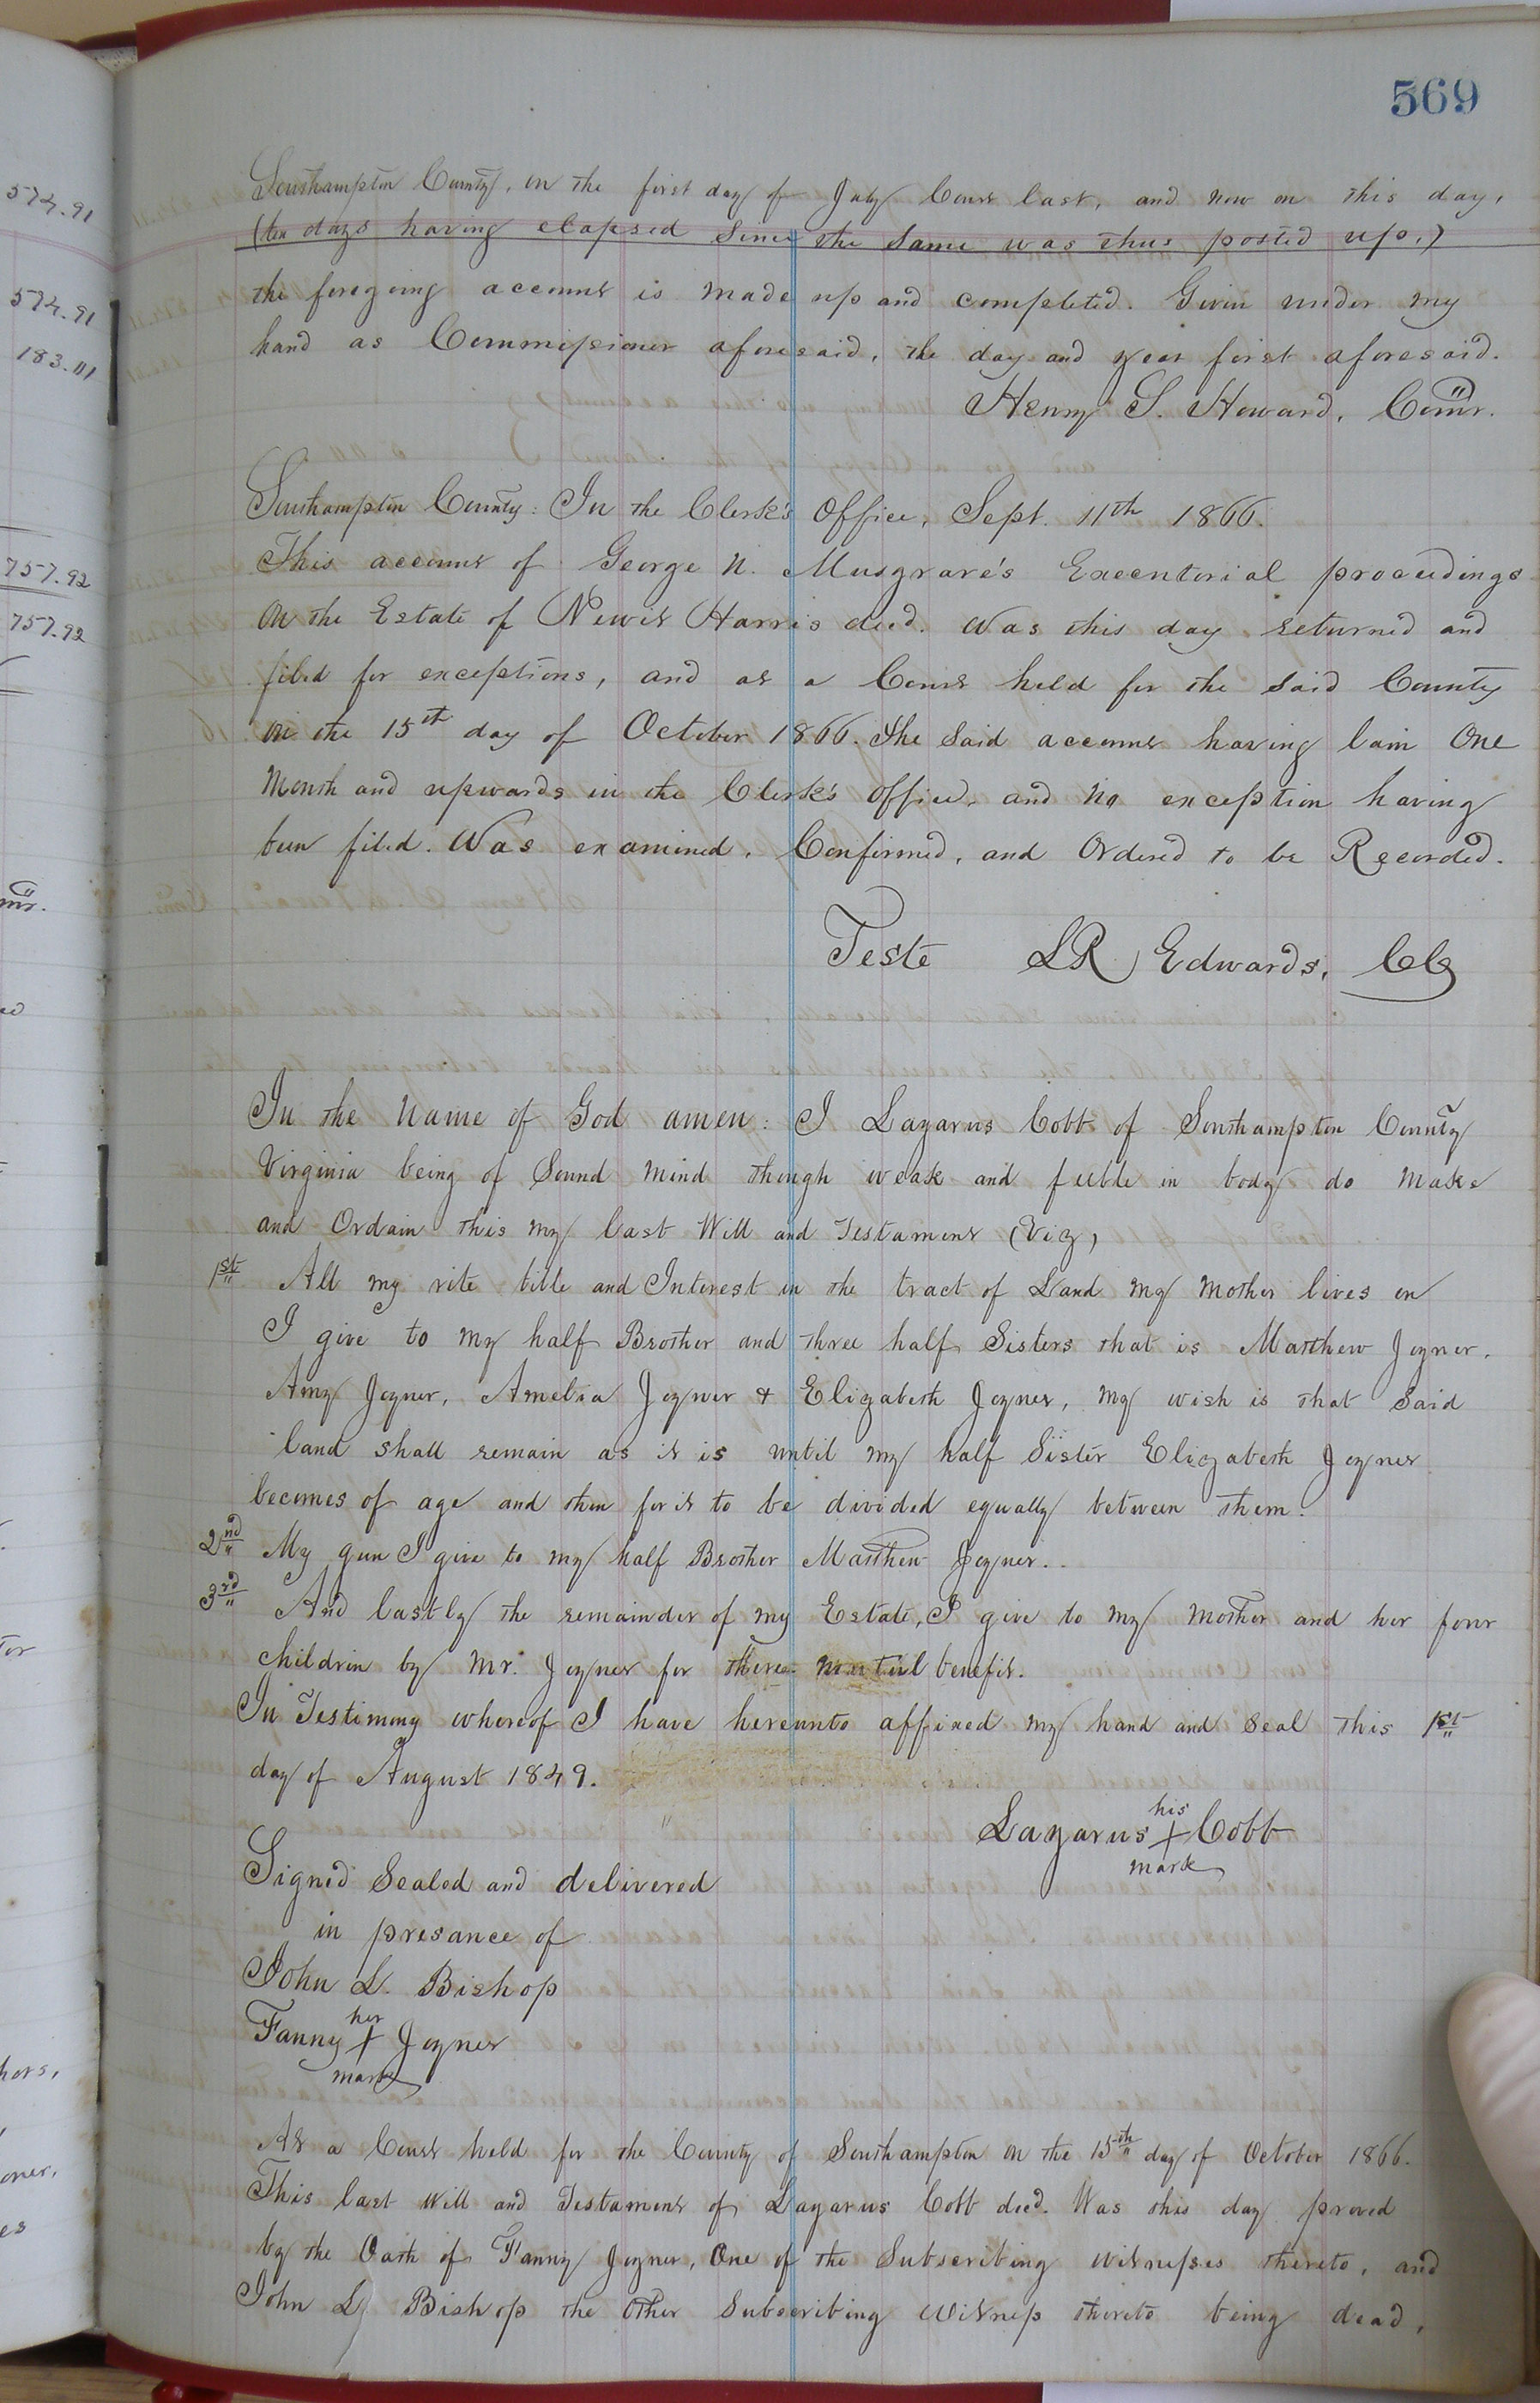 569
574.91
574.91
183.01
757.92
757.92
Southampton County, on the first day of July Court last, and now on this day,
(ten days having elapsed since the same was thus posted up.)
the foregoing account is made up and completed. Given under my
hand as Commissioner aforesaid, the day and year first aforesaid.
Henry S. Howard, Comr.
Southampton County: In the Clerk's Office, Sept. 11th 1866.
This account of George N. Musgrave's Executorial proceedings
on the Estate of Newit Harris decd. Was this day returned and
filed for exceptions, and at a Court held for the said County
on the 15th day of October 1866. The said account having lain One
Month and upwards in the Clerk's office, and no exception having
been filed. Was examined, Confirmed, and Ordered to be Recorded.
Teste LR Edwards, CC
In the Name of God amen: I Lazarus Cobb of Southampton County
Virginia being of Sound mind though weak and feeble in body do make
and Ordain this my last Will and Testament (Viz)
1st All my rite title and Interest in the tract of Land my mother lives on
I give to my half Brother and three half Sisters that is Matthew Joyner.
Amy Joyner, Amelia Joyner & Elizabeth Joyner, my wish is that said
land shall remain as it is until my half Sister Elizabeth Joyner
becomes of age and then for it to be divided equally between them.
2nd My gun I give to my half Brother Matthew Joyner.
3rd And lastly the remainder of my Estate, I give to my mother and her four
children by Mr. Joyner for there mutul benefit.
In Testimony whereof I have hereunto affixed my hand and seal this 1st
day of August 1849.
Lazarus his + mark Cobb
Signed Sealed and delivered
in presance of
John L. Bishop
Fanny her + mark Joyner
At a Court held for the County of Southampton on the 15th day of October 1866.
This last Will and Testament of Lazarus Cobb decd. Was this day proved
by the Oath of Fanny Joyner, One of the Subscribing witnesses thereto, and
John L Bishop the other Subscribing Witness thereto being dead,